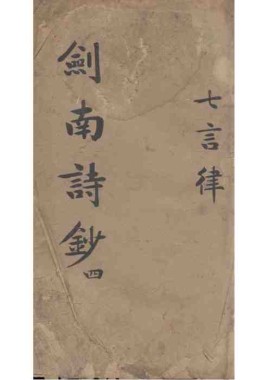 七言律
劍南詩鈔四